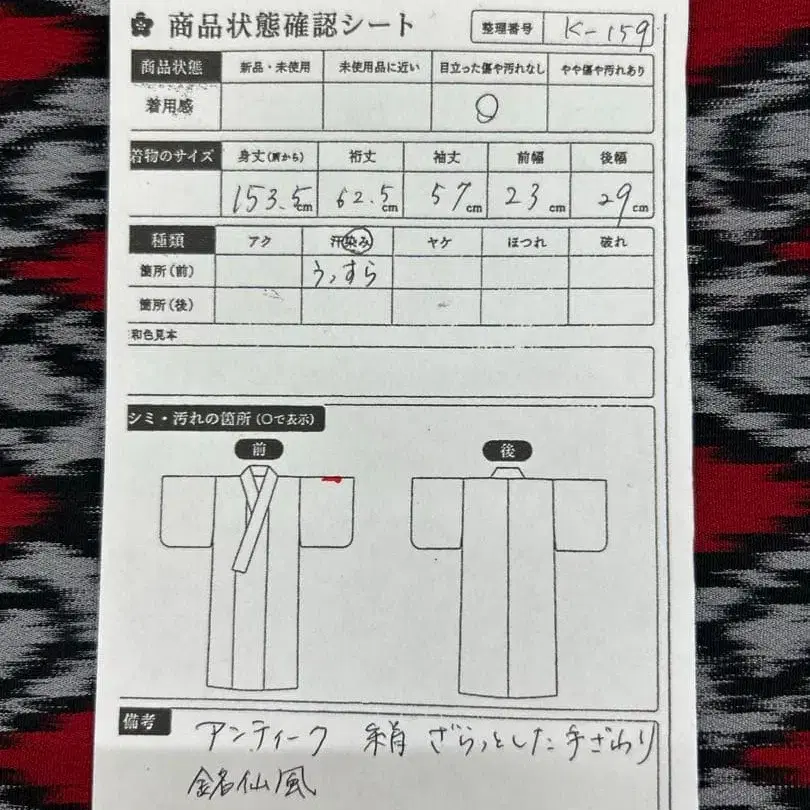 商品状態確認シート 整理番号 K-159
商品状態 新品・未使用 未使用品に近い 目立った傷や汚れなし やや傷や汚れあり
着用感 ○
着物のサイズ 身丈(肩から) 裄丈 袖丈 前幅 後幅
153.5cm 62.5cm 57cm 23cm 29cm
種類 アク 汗染み ヤケ ほつれ 破れ
箇所(前) うっすら
箇所(後)
和色見本
シミ・汚れの箇所(○で表示)
前 後
備考 アンティーク 絹 ざらっとした手ざわり
銘仙風